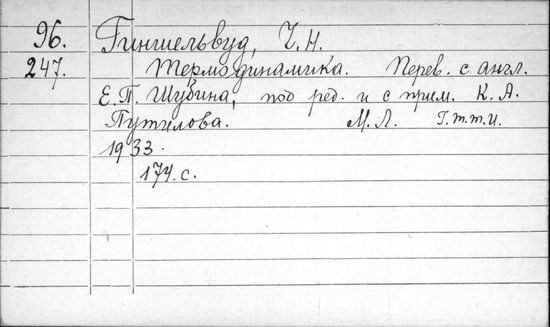 96. Гиншельвуд, Ч. Н.
247. Термодинамика. Перев. с англ.
Е. П. Шубина, под ред. и с прим. К. А.
Путилова. М. Л. Г.т.т.и.
1933.
174.с.